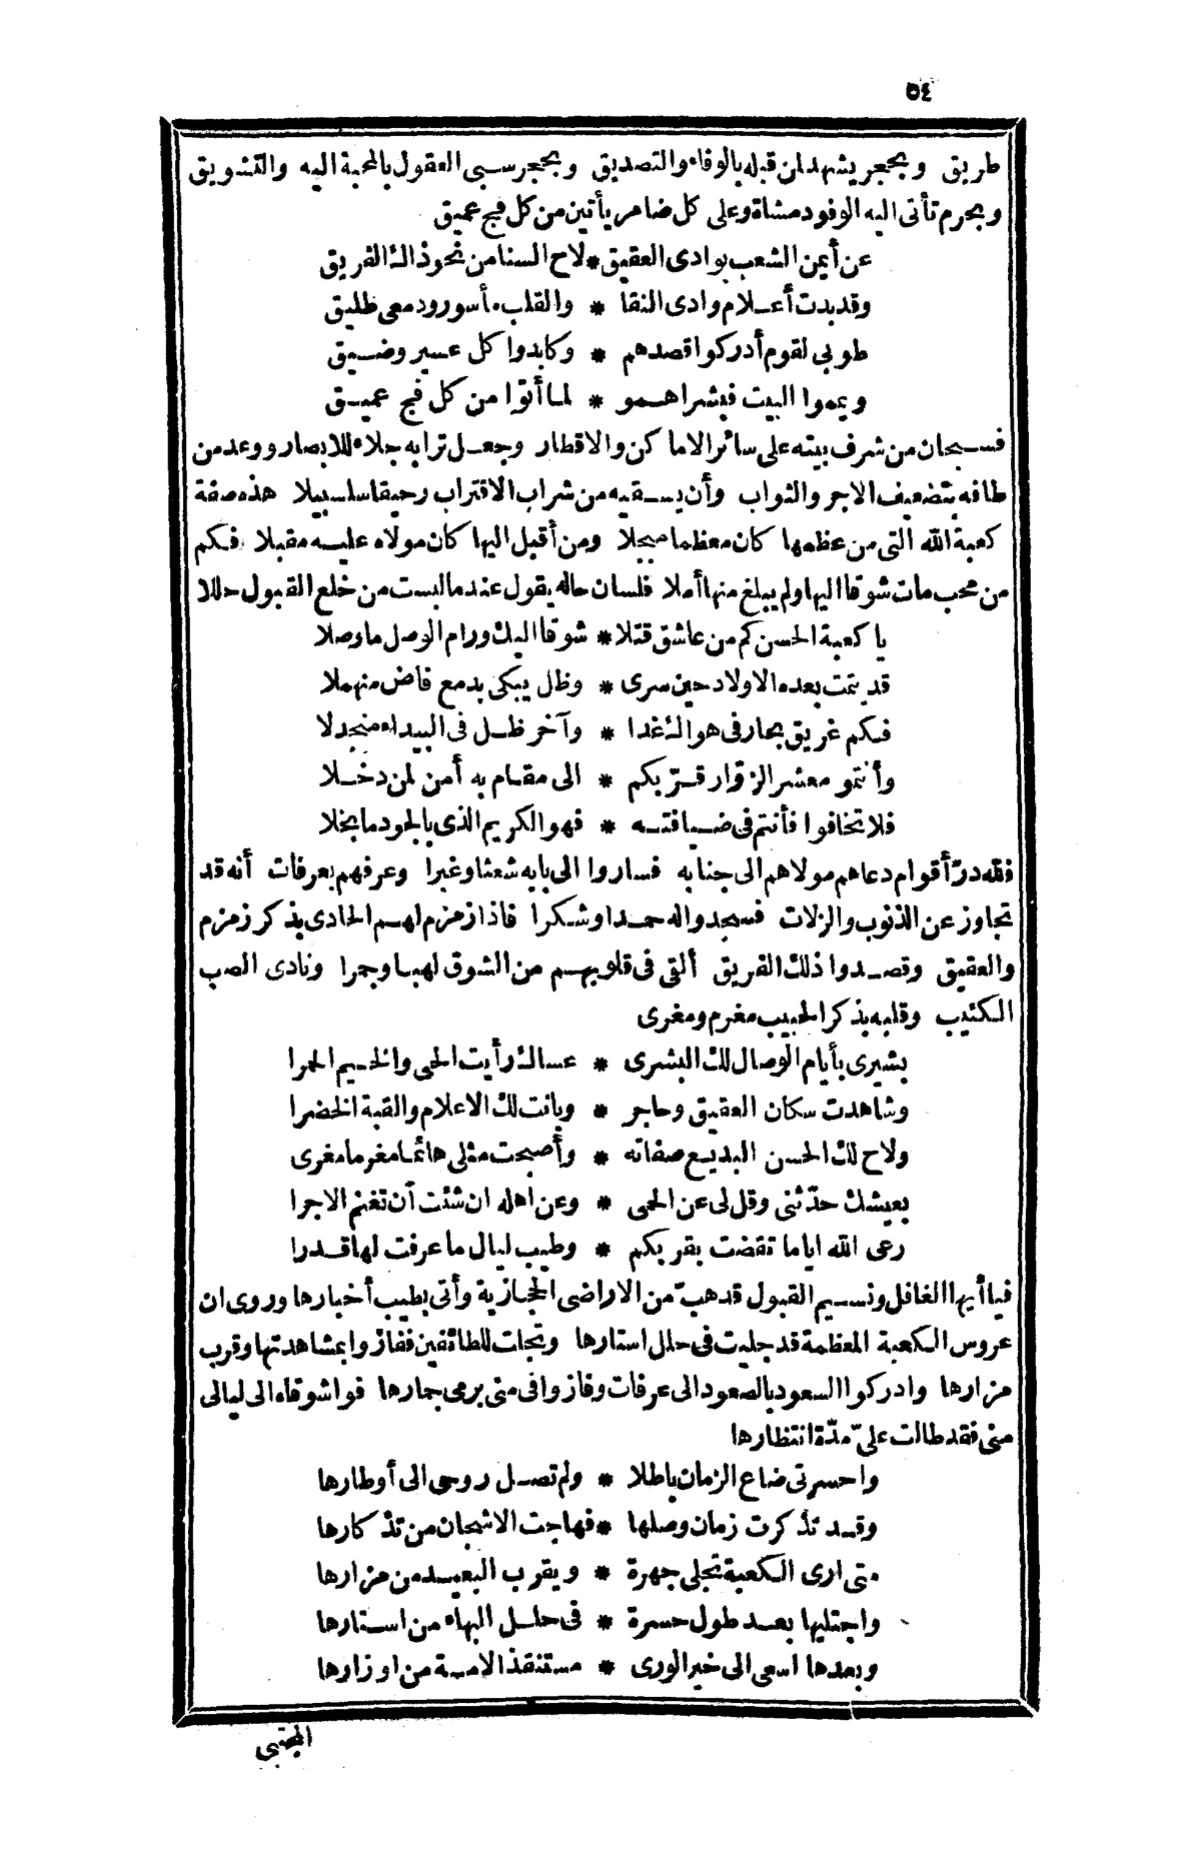 ٥٤
طريق وبحجر يشهد لمن قبله بالوفاء والتصديق وبحجر سبى العقول بالمحبة اليه والتشويق
وبحرم تأتى اليه الوفود مشاة وعلى كل ضامر يأتين من كل فج عميق
عن أيمن الشعب بوادى العقيق * لاح السنا من نحو ذاك الفريق
وقد بدت أعلام وادى النقا * والقلب مأسور ودمعى طليق
طوبى لقوم أدركوا قصدهم * وكابدوا كل عسير وضيق
ويمموا البيت فبشراهمو * لما أتوا من كل فج عميق
فسبحان من شرف بيته على سائر الاماكن والاقطار وجعل ترابه جلاء للابصار ووعد من
طافه بتضعيف الاجر والثواب وأن يسقيه من شراب الاقتراب رحيقا سلسبيلا هذه صفة
كعبة الله التى من عظمها كان معظما مبجلا ومن أقبل اليها كان مولاه عليه مقبلا فكم
من محب مات شوقا اليها ولم يبلغ منها أملا فلسان حاله يقول عندما لبست من خلع القبول حللا
يا كعبة الحسن كم من عاشق قتلا * شوقا اليك ورام الوصل ما وصلا
قد يتمت بعده الاولاد حين سرى * وظل يبكى بدمع فاض منهملا
فكم غريق بحار فى هواك غدا * وآخر ظل فى البيداء منجدلا
وأنتمو معشر الزوار قربكم * الى مقام به أمن لمن دخلا
فلا تخافوا فأنتم فى ضيافته * فهو الكريم الذى بالجود ما بخلا
فلله در أقوام دعاهم مولاهم الى جنابه فساروا الى بابه شعثا وغبرا وعرفهم بعرفات أنه قد
تجاوز عن الذنوب والزلات فسجدوا له حمدا وشكرا فاذا زمزم لهم الحادى بذكر زمزم
والعقيق وقصدوا ذلك الفريق ألقى فى قلوبهم من الشوق لهبا وجمرا ونادى الصب
الكئيب وقلبه بذكر الحبيب مغرم ومغرى
بشيرى بأيام الوصال لك البشرى * عساك رأيت الحى والخيم الحمرا
وشاهدت سكان العقيق وحاجر * وبانت لك الاعلام والقبة الخضرا
ولاح لك الحسن البديع صفاته * وأصبحت مثلى هائما مغرما مغرى
بعيشك حدّثنى وقل لى عن الحمى * وعن اهله ان شئت أن تغنم الاجرا
رعى الله اياما تقضت بقربكم * وطيب ليال ما عرفت لها قدرا
فيا أيها الغافل ونسيم القبول قد هبّ من الاراضى الحجازية وأتى بطيب أخبارها وروى ان
عروس الكعبة المعظمة قد جليت فى حلل استارها وتجلت للطائفين ففازوا بمشاهدتها وقرب
مزارها وادركوا السعود بالصعود الى عرفات وفازوا فى منى برمى جمارها فواشوقاه الى ليالى
منى فقد طالت علىّ مدّة انتظارها
واحسرتى ضاع الزمان باطلا * ولم تصل روحى الى أوطارها
وقد تذكرت زمان وصلها * فهاجت الاشجان من تذكارها
متى ارى الكعبة تجلى جهرة * ويقرب البعيد من مزارها
واجتليها بعد طول حسرة * فى حلل البهاء من استارها
وبعدها اسعى الى خير الورى * مستنقذ الامة من اوزارها
المجتبى